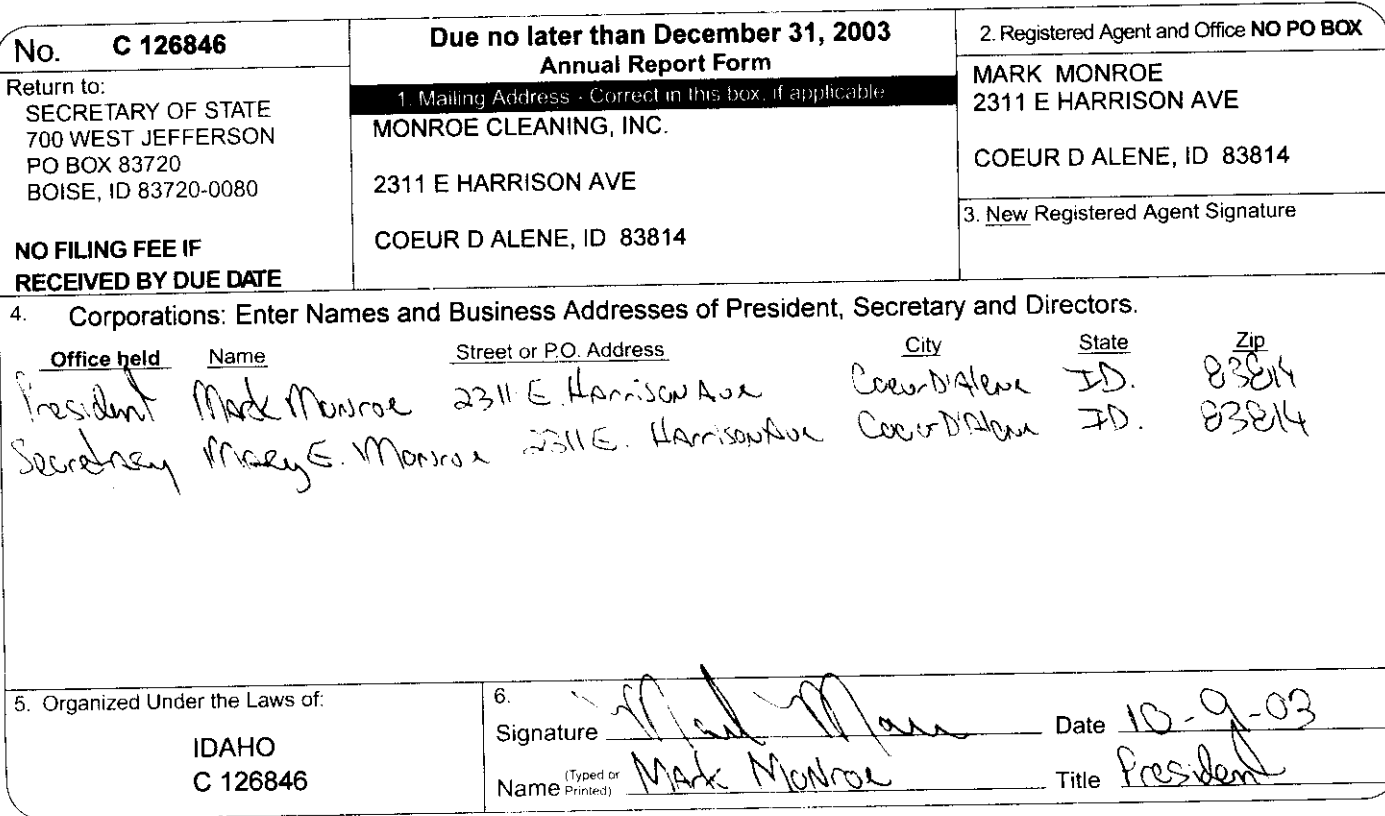 No. C 126846
Return to:
SECRETARY OF STATE
700 WEST JEFFERSON
PO BOX 83720
BOISE, ID 83720-0080
NO FILING FEE IF
RECEIVED BY DUE DATE
Due no later than December 31, 2003
Annual Report Form
1. Mailing Address - Correct in this box, if applicable
MONROE CLEANING, INC.
2311 E HARRISON AVE
COEUR D ALENE, ID 83814
2. Registered Agent and Office NO PO BOX
MARK MONROE
2311 E HARRISON AVE
COEUR D ALENE, ID 83814
3. New Registered Agent Signature
4. Corporations: Enter Names and Business Addresses of President, Secretary and Directors.
Office held Name Street or P.O. Address City State Zip
President Mark Monroe 2311 E. Harrison Ave Coeur D'Alene ID. 83814
Secretary Mary E. Monroe 2311 E. Harrison Ave Coeur D'Alene ID. 83814
5. Organized Under the Laws of:
IDAHO
C 126846
6.
Signature Mark Monroe Date 10-9-03
Name (Typed or Printed) Mark Monroe Title President